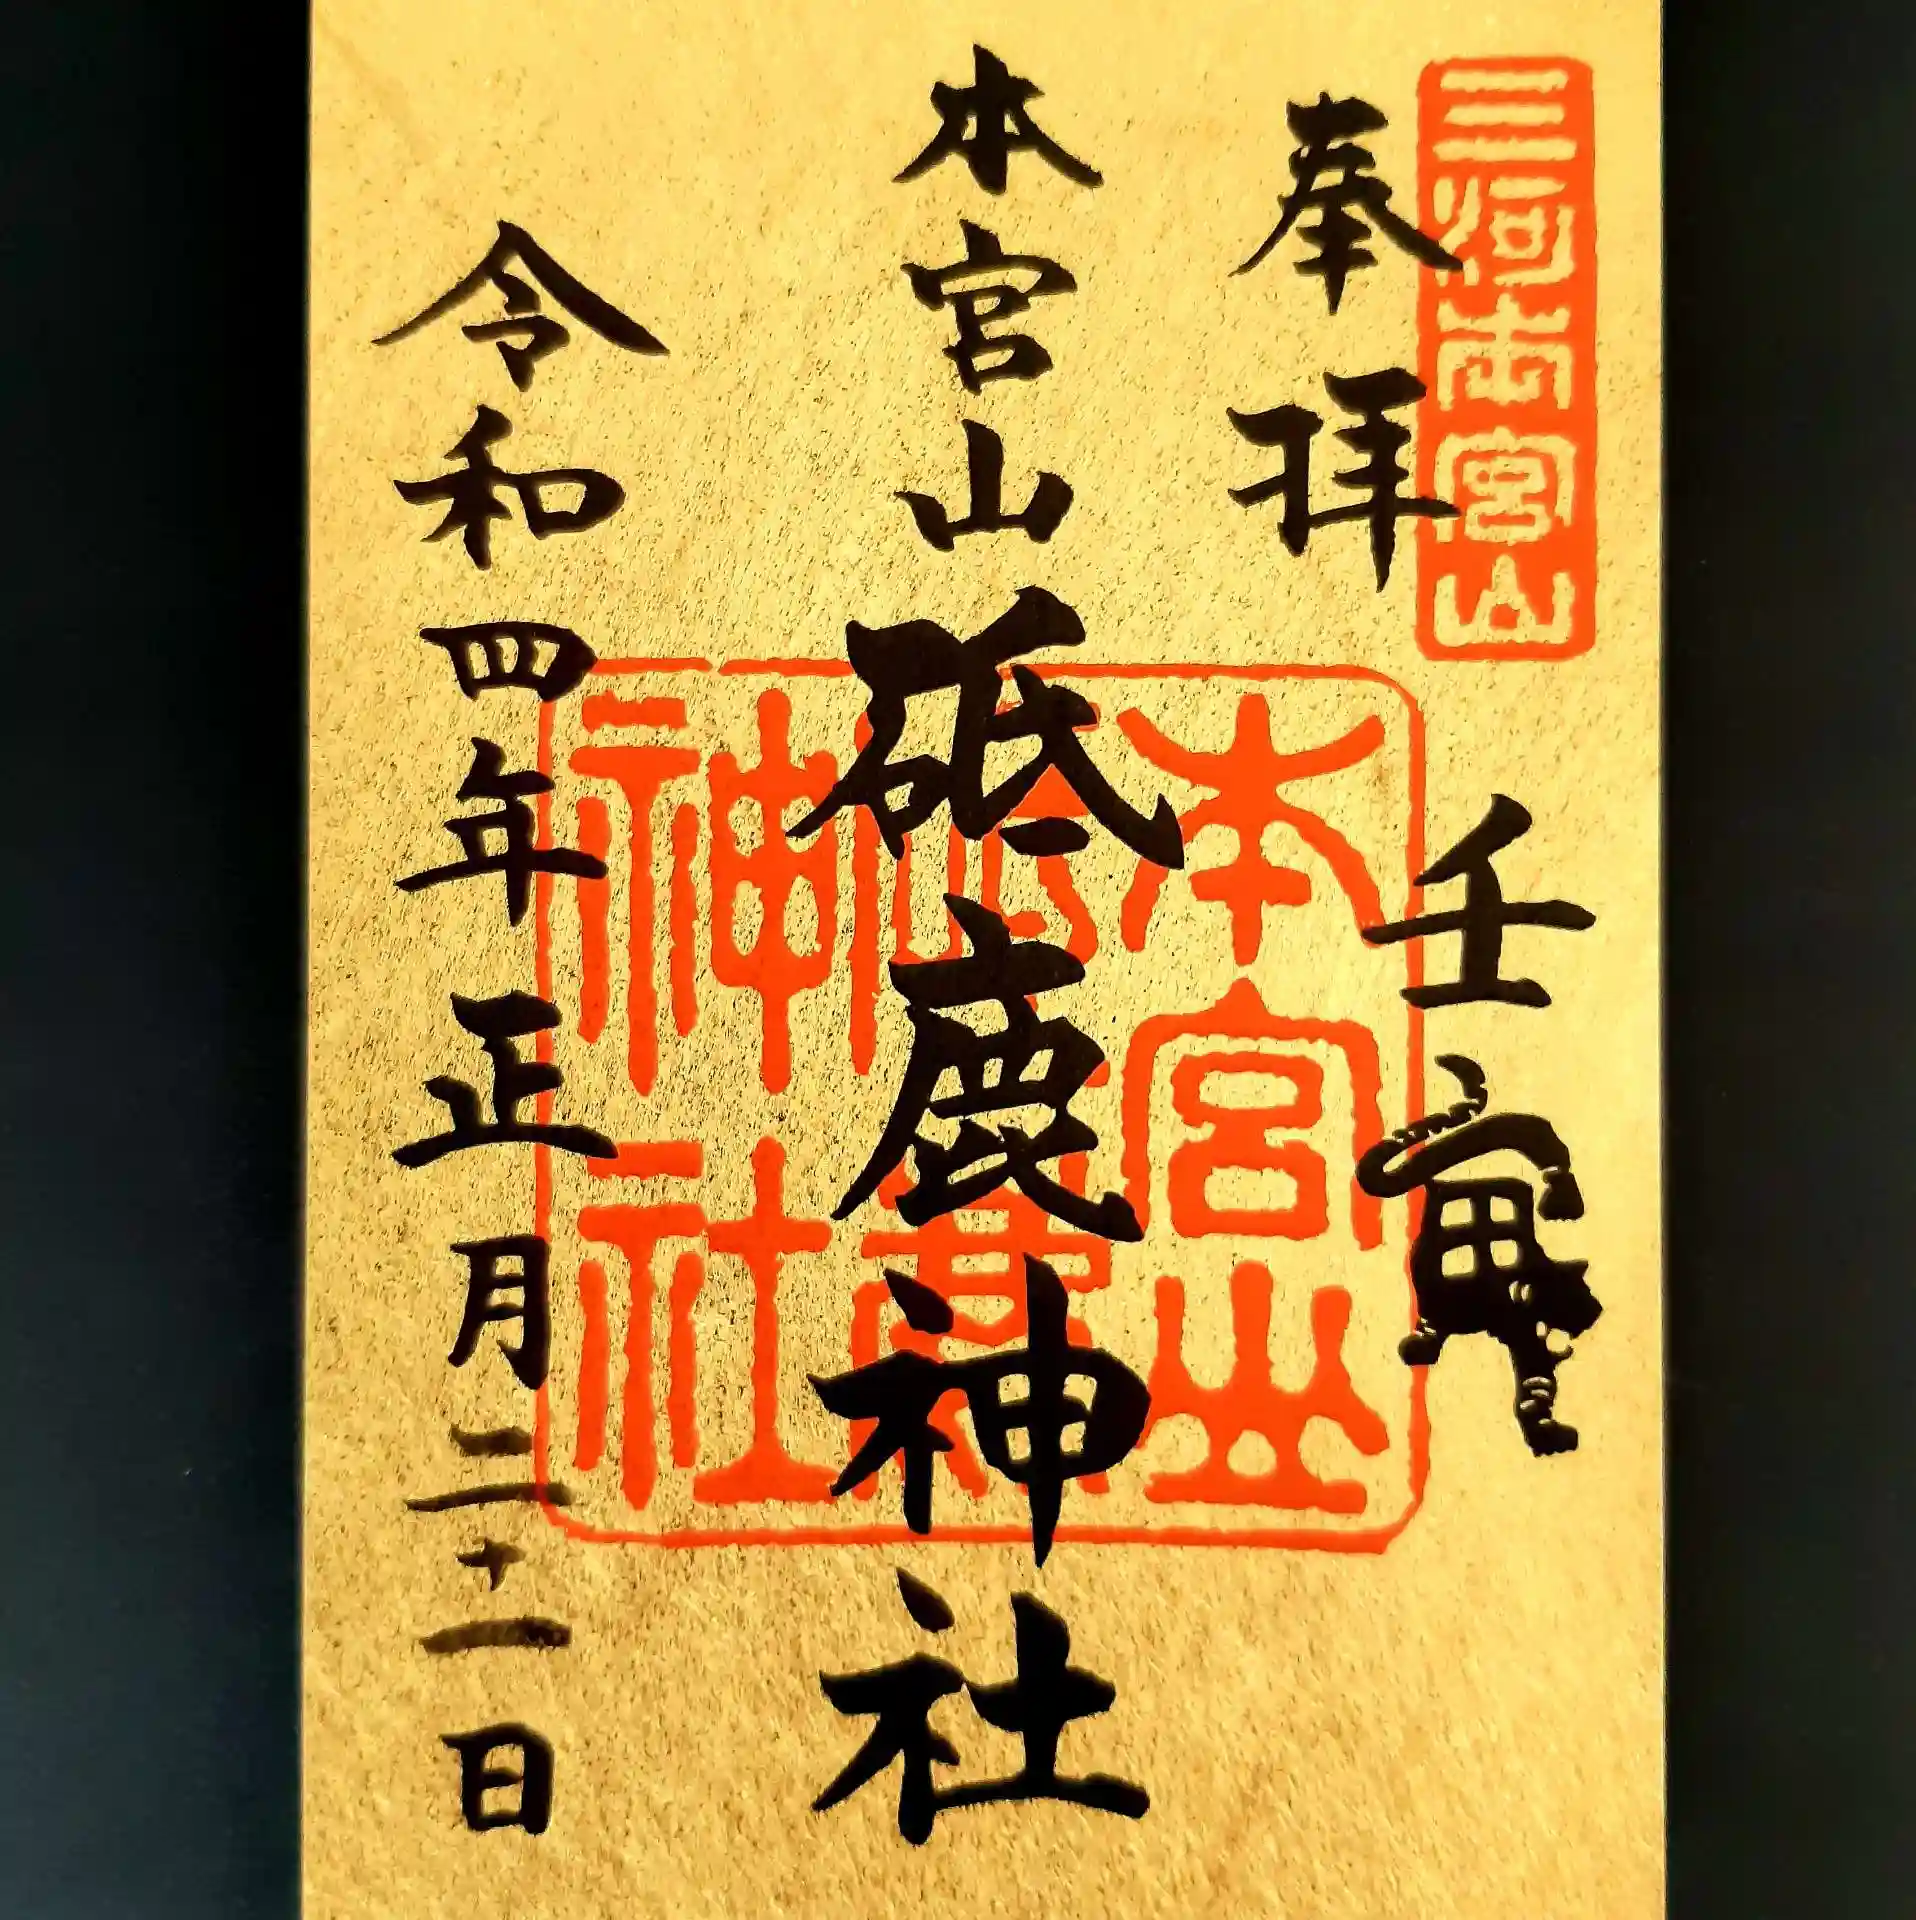 三河本宮山
奉拝
壬寅
本宮山砥鹿神社
本宮山砥鹿神社
令和四年正月二十一日